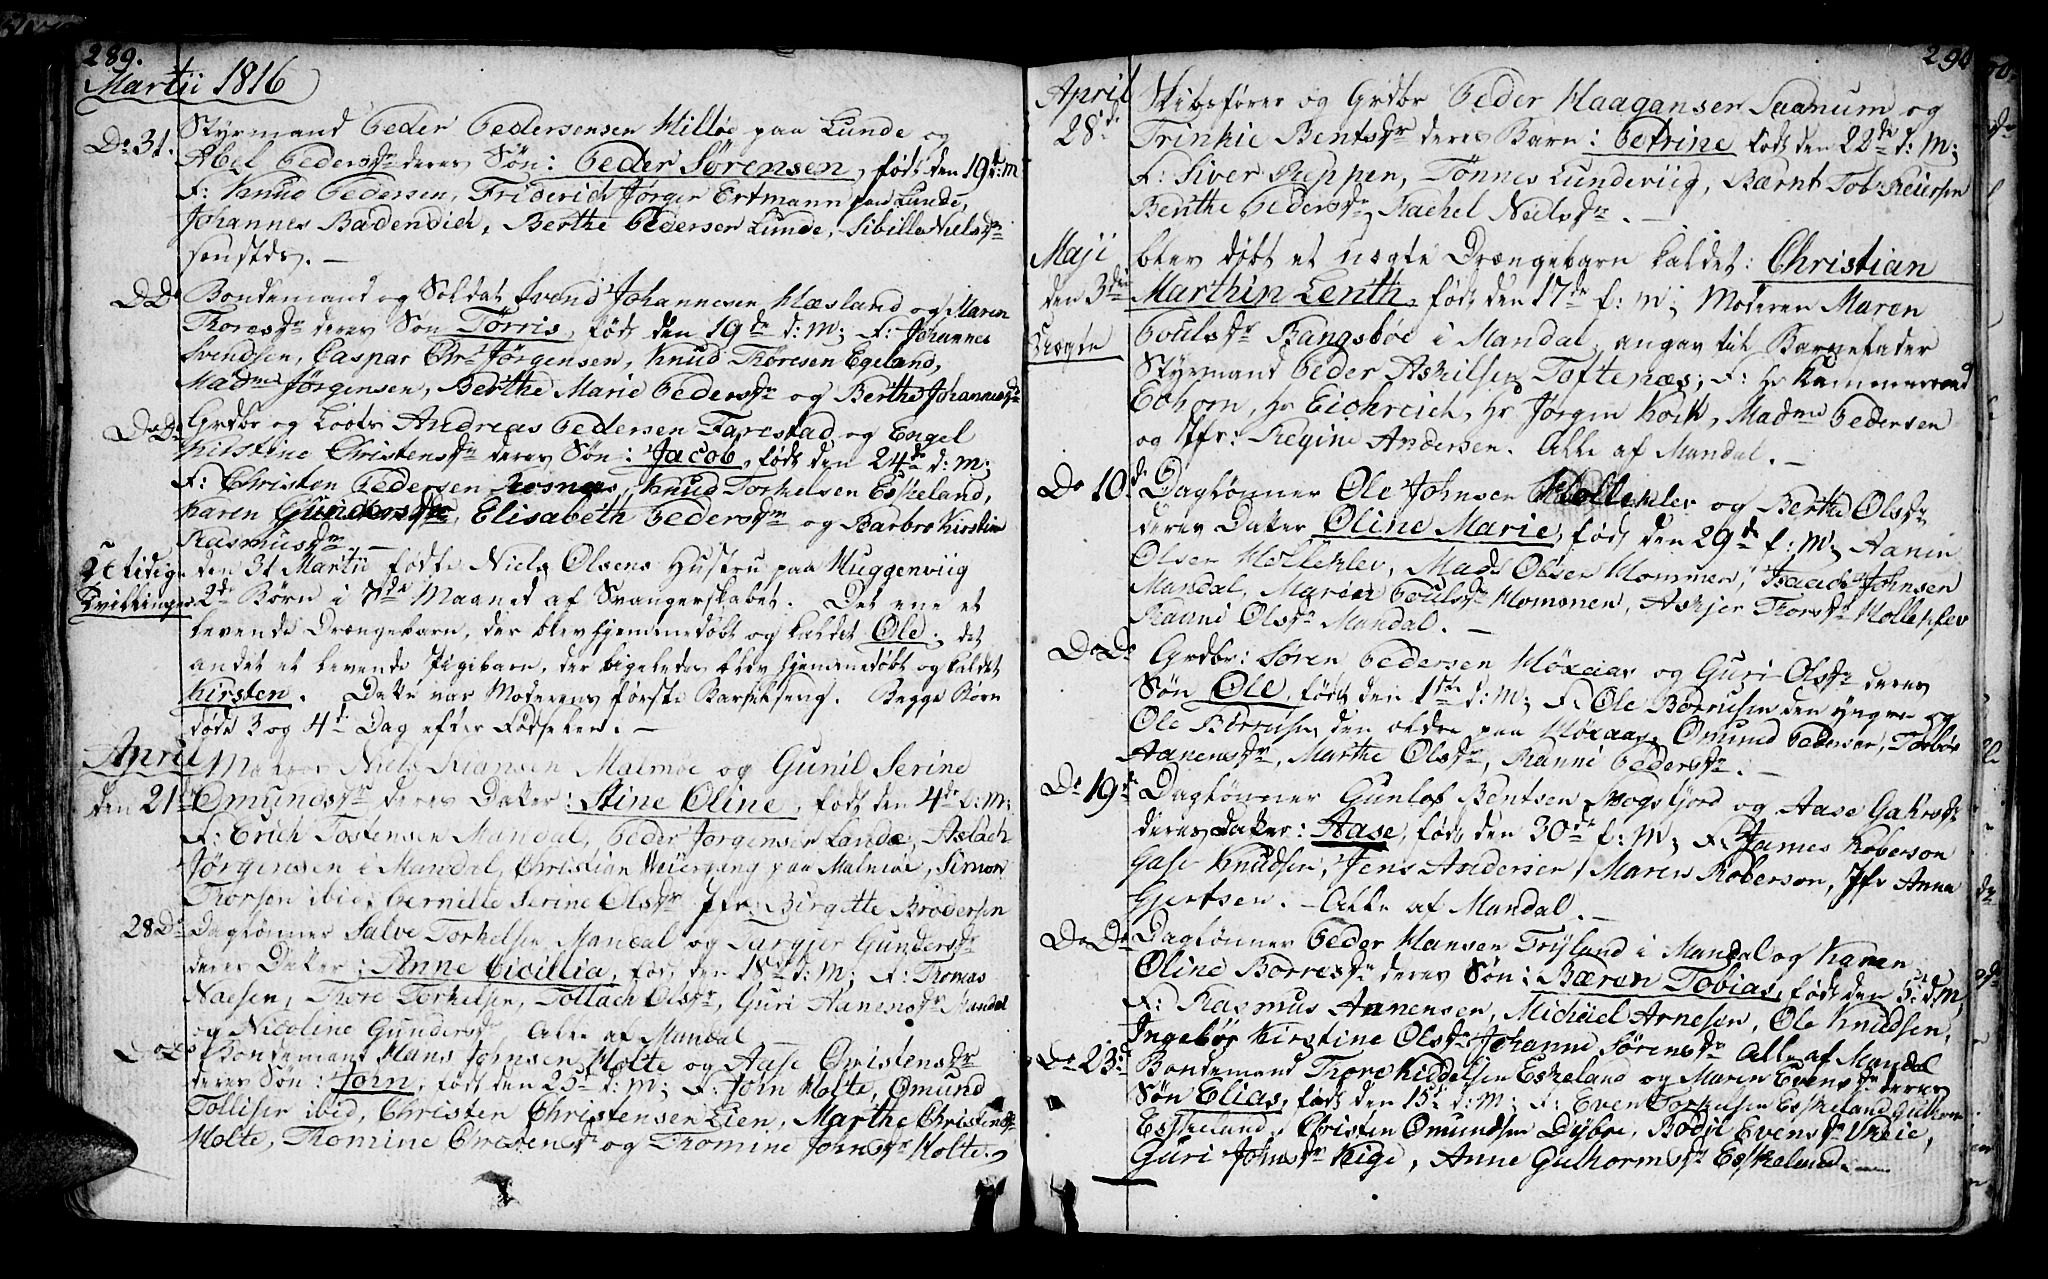 289.
Martii 1816
Do 31. Styrmand Peder Pedersensen Hilløe paa Lunde og
Abel Pedersdr deres Søn: Peder Sørensen, født den 19 d: M
F: Knud Pedersen, Friderich Jørgen Ertmann paa Lunde,
Johannes Badendick, Berthe Pedersen Lunde, Sibille Nielsdr
sonstds. —
DoDo Bondemand og Soldat Svend Johannesen Klæsland og Maren
Thoresdr deres Søn Tørris, født den 19de d: M; F: Johannes
Svendsen, Caspar Chr: Jørgensen, Knud Thoresen Egeland,
Madme Jørgensen, Berthe Marie Pedersdr og Berthe Johannesdr
DoDo Grdbr og Loots Andreas Pedersen Farestad og Engel
Kirstine Christensdr deres Søn: Jacob, født den 24de d: M;
F: Christen Pedersen Rosnæs, Knud Torkelsen Eskeland,
Karen Gundersdr, Elisabeth Pedersdr og Barbro Kirstine
Rasmusdr —
2 utidige den 31 Martii fødte Niels Olsens Hustru paa Skuggenviig
Tvillinger 2de Børn i 8de Maaned af Svangerskabet. Det ene et
levende Drængebarn, der blev hjemmedøbt og kaldet Ole; det
andet et levende Pigebarn, der ligeledes blev hjemmedøbt og kaldet
Kirsten. Dette var Moderens første Barselseng. Begge Børn
døde 3 og 4de Dag efter Fødselen. —
April Matros Niels Kiansen Malmøe og Gunil Serine
den 21de Omundsdr deres Datter: Stine Oline, født den 4de f: M;
F: Erich Tostensen Mandal, Peder Jørgensen Lande, Aslach
Jørgensen i Mandal, Christian Weiergang paa Malmøe, Simon
Thorsen ibid; Pernille Serine Olsdr Jfr: Birgitte Brodersen
28 Do Dagtønner Salve Torkelsen Mandal og Targjer Gundersdr
deres Datter: Anne Cicillia, født den 18de d: M; F: Thomas
Naesen, Thore Torkelsen, Tollach Olsdr, Guri Aanensdr Mandal
og Nicoline Gundersdr Alle af Mandal —
DoDo Bondemand Hans Johnsen Holte og Aase Christensdr
deres Søn: John, født den 25de d: M; F: John Holte, Omund
Tollisen ibid, Christen Christensen Lien, Marthe Christensdr
Holte, Thomine Christensdr og Thomine Johnsdr Holte.

290
April Skibsfører og Grdbr Peder Haagansen Saanum og
28de Trinkie Bentsdr deres Barn: Petrine født den 22de d: M;
F: Siver Reppen, Tønnes Lundeviig, Bærnt Tob: Reiersen
Berthe Pedersdr, Rachel Neilsdr. —
Maji blev døbt et uægte Drængebarn kaldet: Christian
den 3die Marthin Lenth, født den 17de f: M; Moderen Maren
Uægte Poulsdr Bangsbøe i Mandal, angav til Barnefader
Styrmand Peder Askilsen Toftenæs; F: Hr Kammerraad
Eckorn, Hr Eichreich, Hr Jørgen Kock, Madme Pedersen
og Jfr: Regine Andersen. Alle af Mandal. —
Do 10de Dagtønner Ole Johnsen Holleklev og Berthe Olsdr
deres Datter Oline Marie, født den 29de f: M; Aanen
Olsen Holleklev, Mads Olsen Hommen, Isaach Johnsen
Mandal, Maren Poulsdr Homonen, Askjer Thorsdr Holleklev
Ranni Olsdr Mandal. —
DoDo Grdbr: Søren Pedersen Høxaas og Guri Olsdr deres
Søn Ole, født den 1ste d: M; F: Ole Børrusen den yngre og
Ole Børrusen den ældre paa Høxaas, Omund Pedersen, Torbør
Aanensdr, Marthe Olsdr, Ranni Pedersdr. —
Do 19de Dagtønner Gunlof Bentsen Skogsfjord og Aase Gahrsdr
deres Datter: Aase, født den 30de f: M; F: James Roberson
Gase Knudsen, Jens Andersen, Maren Roberson, Jfr Anna
Gjertsen. — Alle af Mandal. —
DoDo Dagtønner Peder Hansen Tryland i Mandal og Karen
Oline Børresdr deres Søn: Bæren Tobias, født den 5te d: M,
F: Rasmus Annensen, Michael Arnesen, Ole Knudsen,
Ingebør Kirstine Olsdr Johanne Sørensdr Alle af Mandal
Do 23de Bondemand Thore Kiddelsen Eskeland og Maren Evensdr deres
Søn Elias, født den 15de d: M; F: Even Torkelsen Eskeland, Gulhorm
Eskeland, Christen Omundsen Dybøe, Bodil Evensdr Vraie,
Guri Johnsdr Kige, Anne Gulhormsdr Eskeland. —